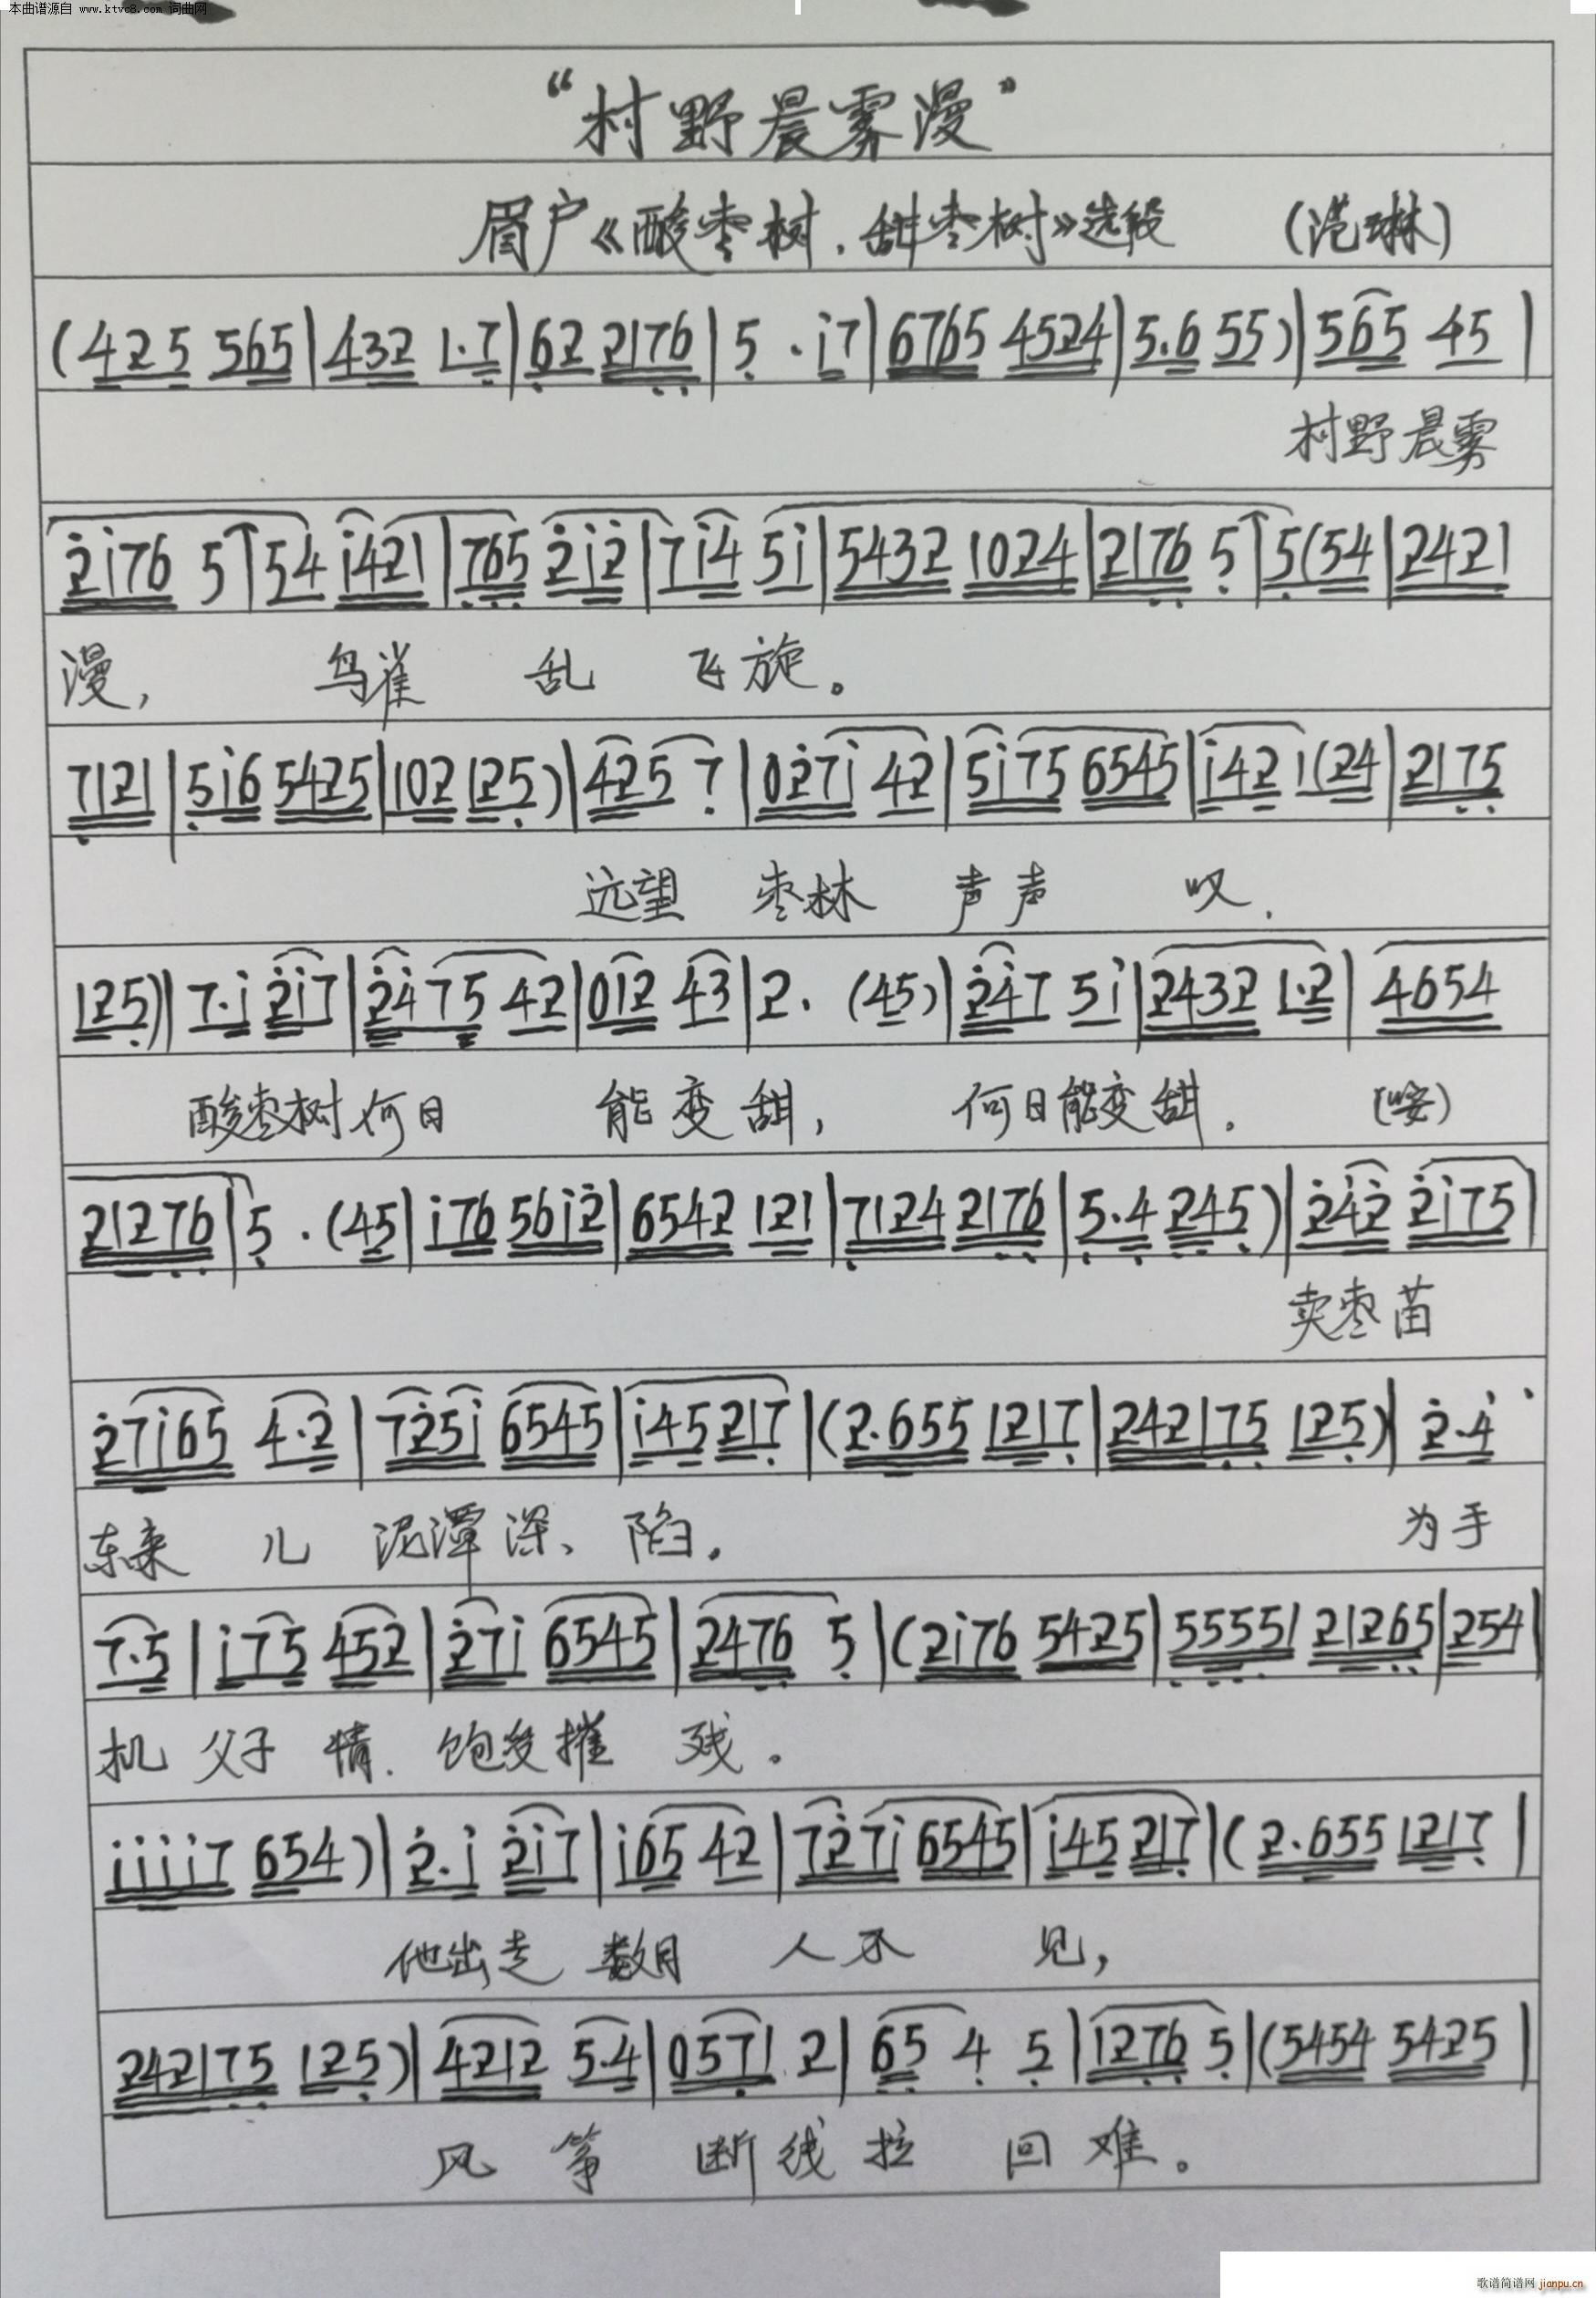 本曲谱源自 www.ktvc8.com 词曲网
“村野晨雾漫”
眉户《酸枣树,甜枣树》选段 (范琳)
(425 565|432 1·7|62 2176|5 ·i7|6765 4524|5.6 55)|565 45|
村野晨雾
2i76 5|54 i421|765 2i2|7i4 5i|5432 1024|2176 5|5(54|2421
漫, 鸟雀 乱 飞旋。
7121|5i6 5425|102 125)|425 7|027i 42|5i75 6545|i42 1(24|2175
远望 枣林 声声 叹,
125)|7·i 2i7|2475 42|012 43|2· (45)|247 5i|2432 1·2|4654
酸枣树何日 能变甜, 何日能变甜. (咹)
21276|5 ·(45|i76 56i2|6542 121|7124 2176|5·4 245)|242 2i75|
卖枣苗
27i65 4·2|725i 6545|i45217|(2·655 1217|242175 125)|2·4
东来 儿 泥潭深、陷.
为手
7·5|i75 452|27i 6545|2476 5|(2i76 5425|55551 21265|254|
机 父子 情. 饱受摧 残.
iiii7 654)|2·i 2i7|i65 42|727i 6545|i45 217|(2·655 1217|
他出走 数月 人不 见,
242175 125)|4212 5·4|0571 2|65 4 5|1276 5|(5454 5425|
风 筝 断线拉 回难。
歌谱简谱网 jianpu.cn